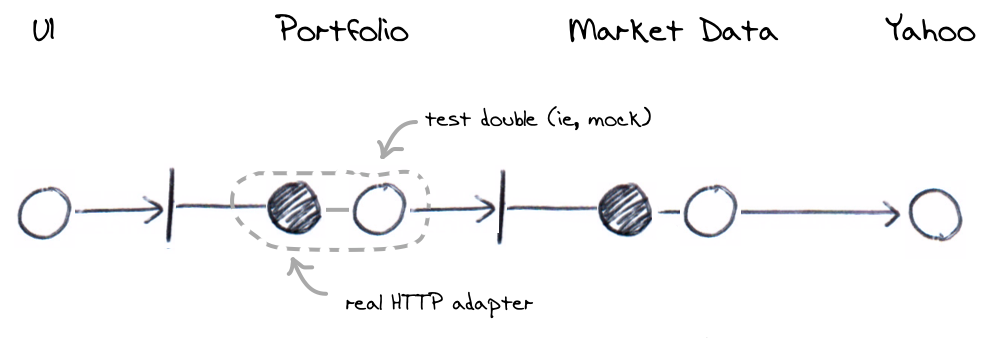 UI Portfolio Market Data Yahoo
test double (ie, mock)
real HTTP adapter